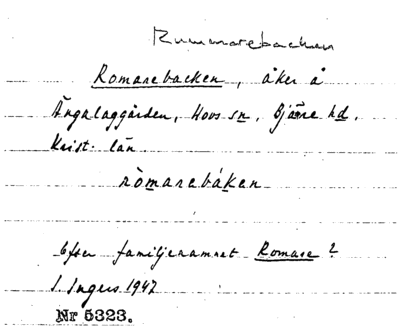 Rummarebacken
Romarebacken, åker å
Ängalaggården, Hovs sn, Bjäre hd,
Krist. län
ròmarebáken
Efter familjenamnet Romare?
I. Ingers 1947
Nr 5323.